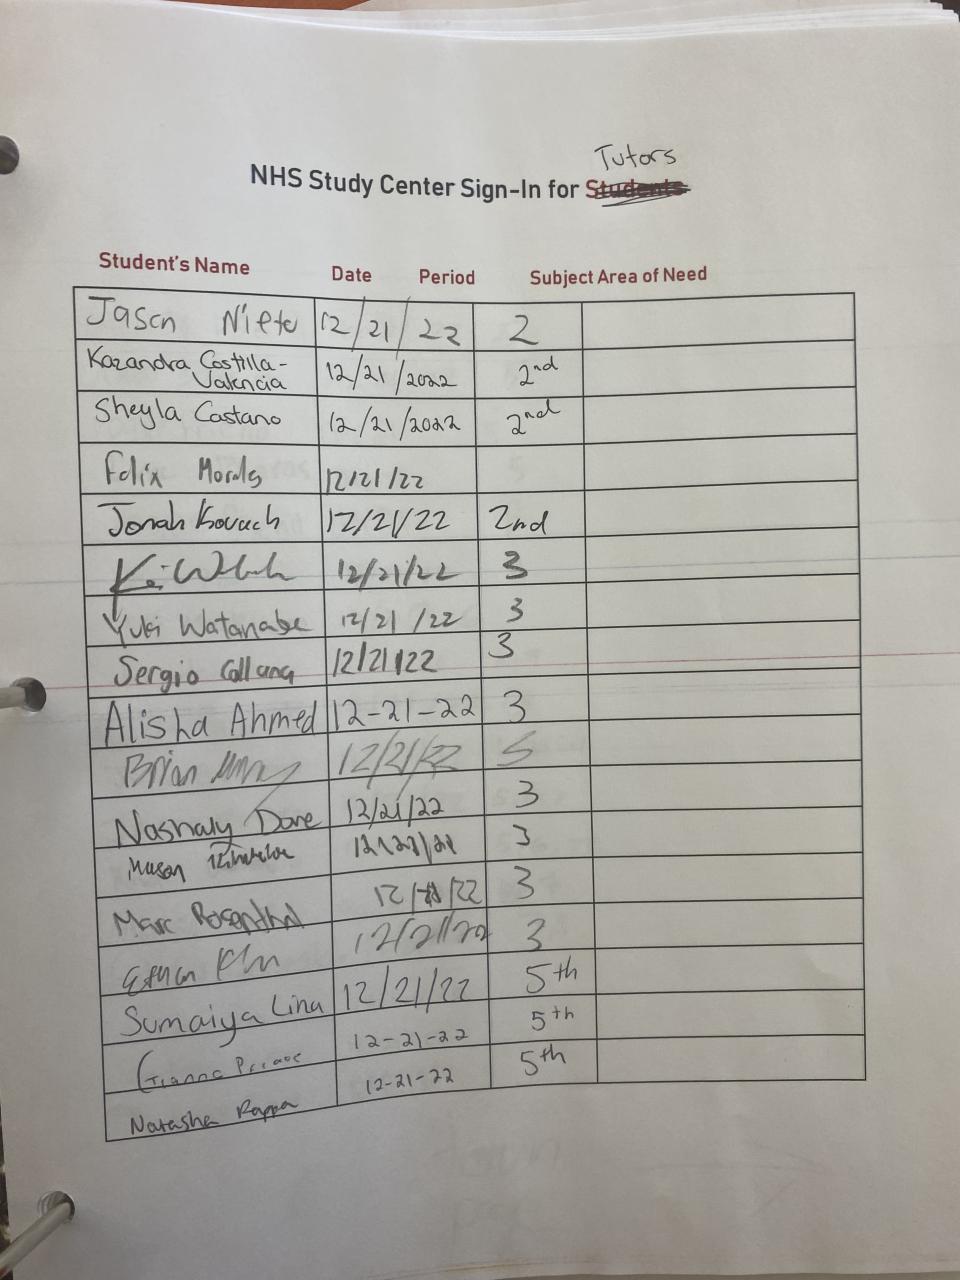 Tutors
NHS Study Center Sign-In for Students
Student's Name Date Period Subject Area of Need
Jason Nieto 12/21/22 2
Kazandra Costilla-
Valencia 12/21/2022 2nd
Sheyla Castano 12/21/2022 2nd
Felix Morales 12/21/22
Jonah Kovach 12/21/22 2nd
12/21/22 3
Yuki Watanabe 12/21/22 3
Sergio 12/21/22 3
Alisha Ahmed 12-21-22 3
Brian 12/21/22 5
Nashaly Dore 12/21/22 3
Mason 3
Marc Rosenthal 12/21/22 3
Ethan 12/21/22 3
Sumaiya Lina 12/21/22 5th
Gianna 12-21-22 5th
Natasha Rappa 12-21-22 5th